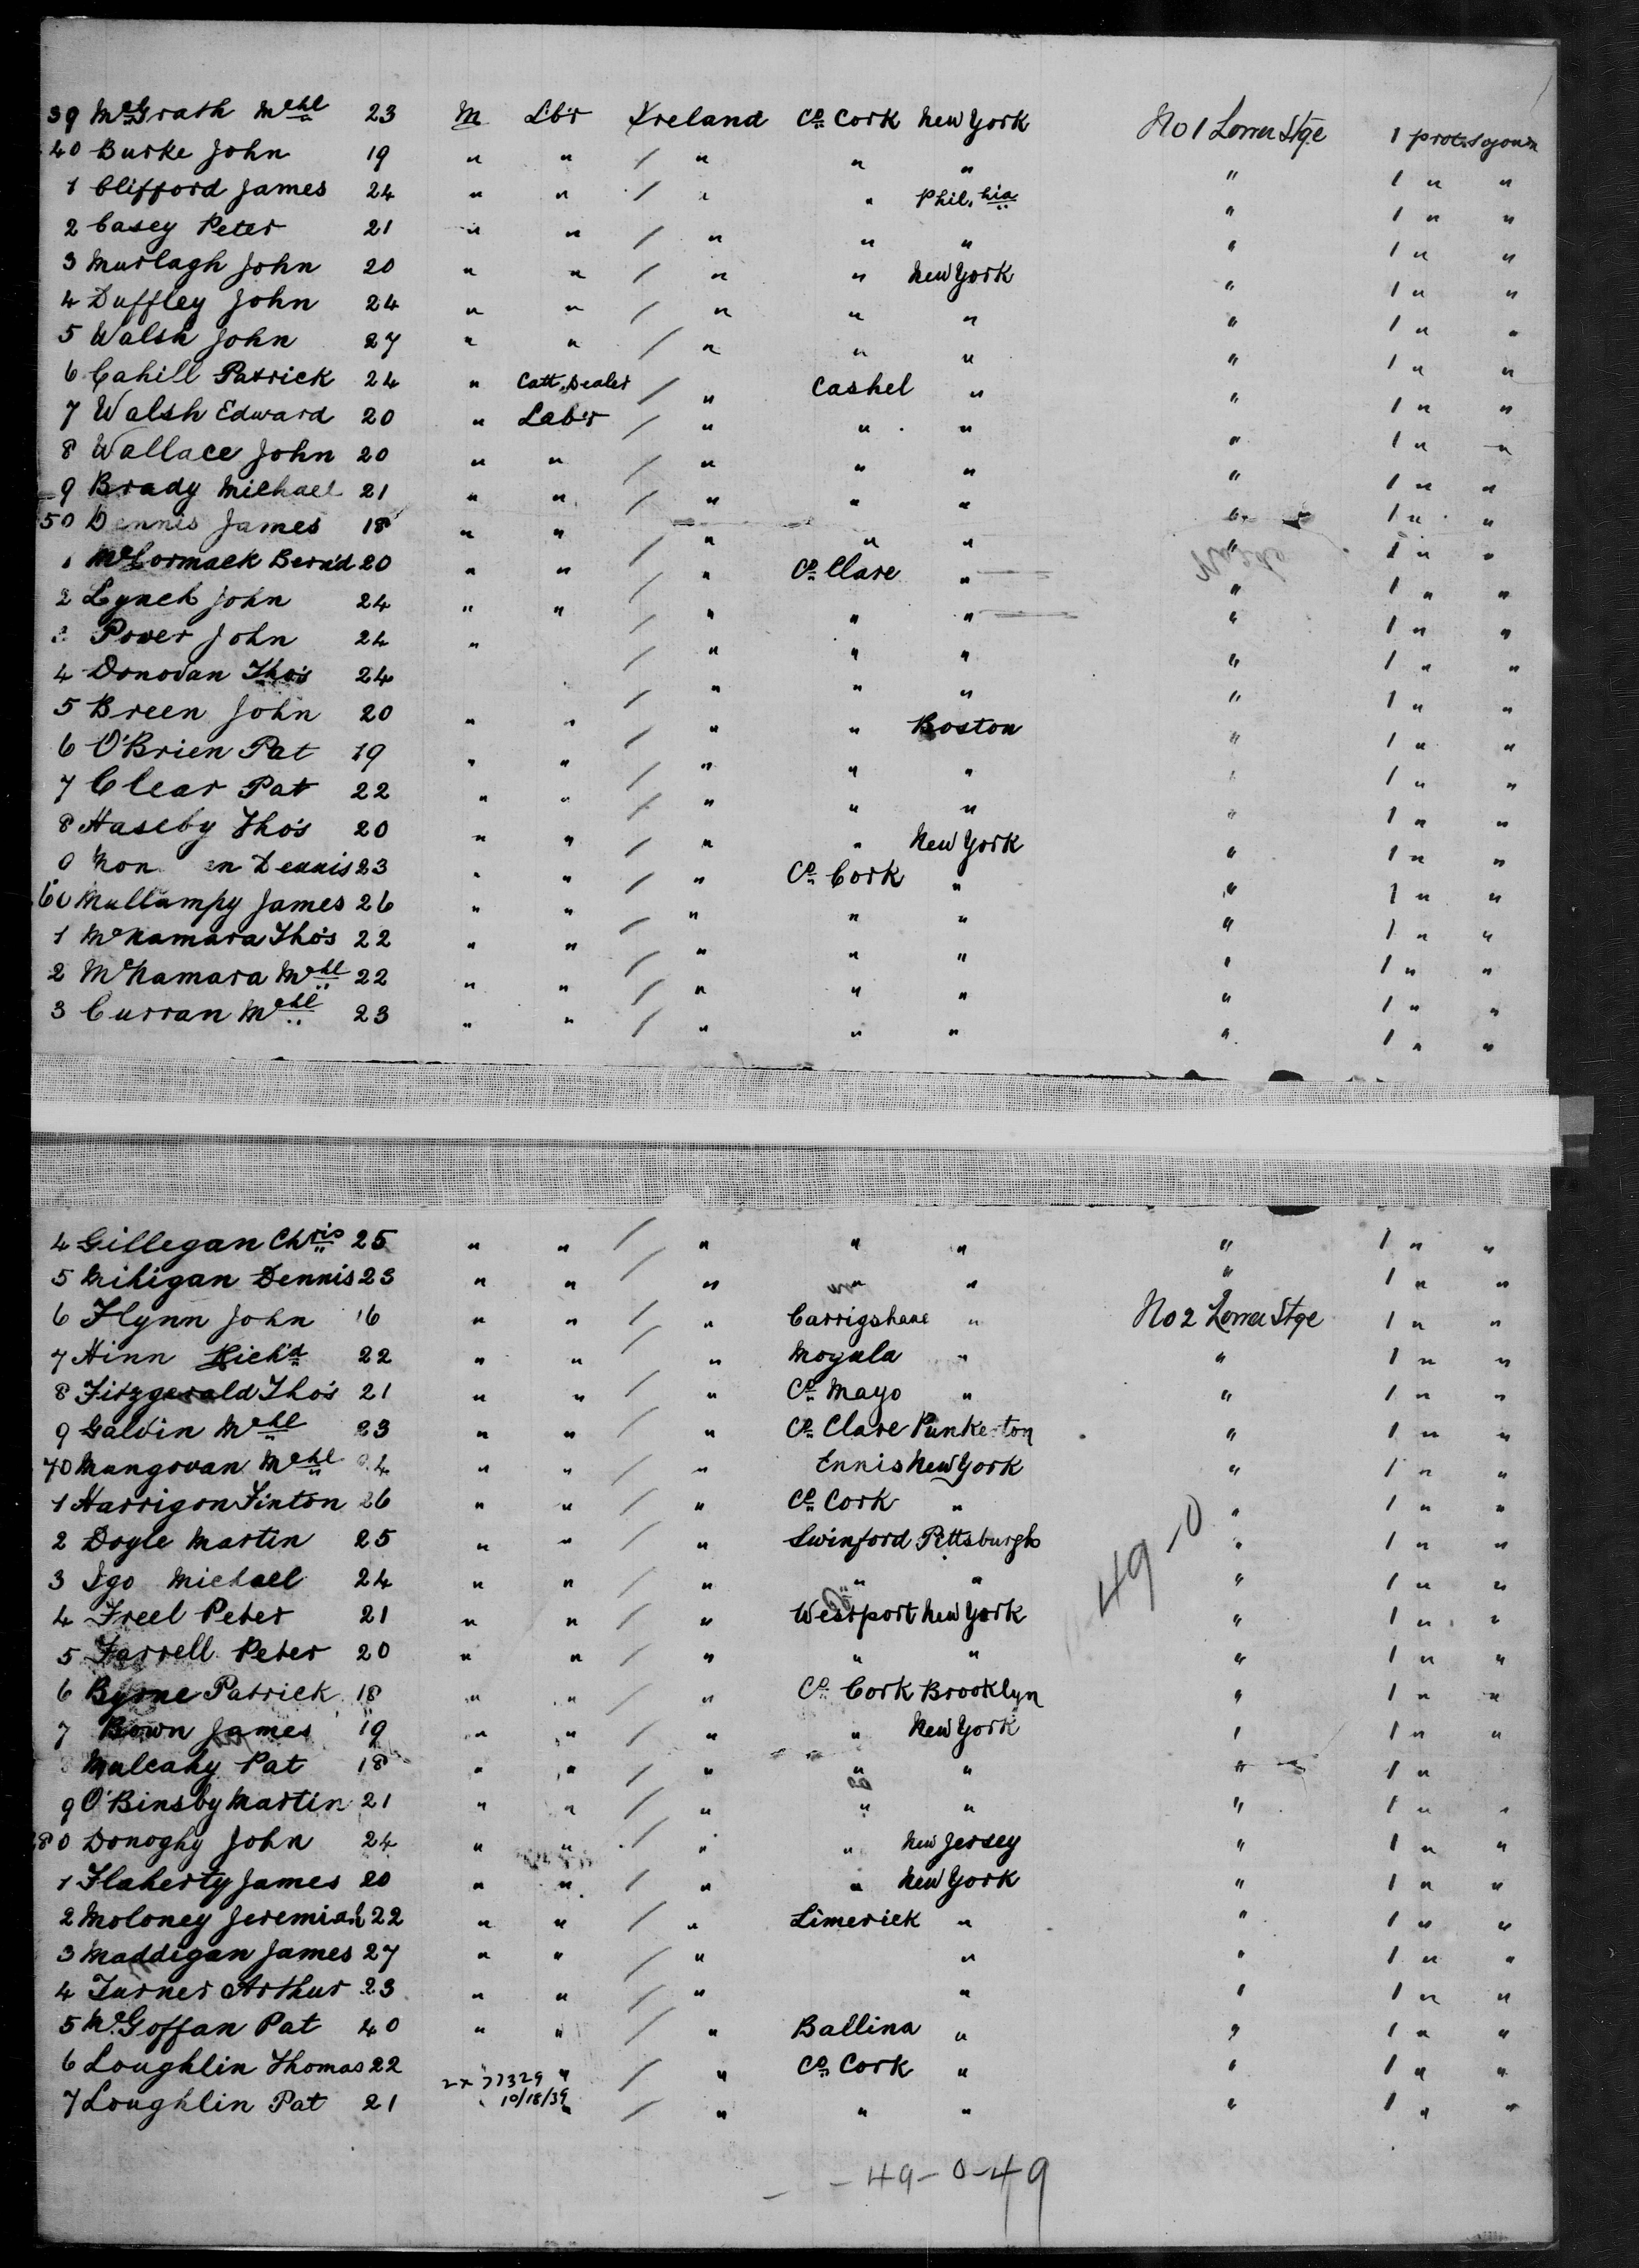 39 McGrath Mchl 23 M Lbr Ireland Co Cork New York No 1 Lower Stge 1 prot. sojourn
40 Burke John 19 " " / " " " " 1 " "
1 Clifford James 24 " " / " " Phil.hia " 1 " "
2 Casey Peter 21 " " / " " " " 1 " "
3 Murtagh John 20 " " / " " New York " 1 " "
4 Duffley John 24 " " / " " " " 1 " "
5 Walsh John 27 " " / " " " " 1 " "
6 Cahill Patrick 24 " Catt. Dealer / " Cashel " " 1 " "
7 Walsh Edward 20 " Lab'r / " " " " 1 " "
8 Wallace John 20 " " / " " " " 1 " "
9 Brady Michael 21 " " / " " " " 1 " "
50 Dennis James 18 " " / " " " " 1 " "
1 McCormack Bern'd 20 " " / " Co Clare " " 1 " "
2 Lynch John 24 " " / " " " " 1 " "
Power John 24 " / " " " " 1 " "
4 Donovan Tho's 24 / " " " " 1 " "
5 Breen John 20 " " / " " Boston " 1 " "
6 O'Brien Pat 19 " " / " " " " 1 " "
7 Clear Pat 22 " " / " " " " 1 " "
8 Haseby Tho's 20 " " / " " New York " 1 " "
Dennis 23 " " / " Co Cork " " 1 " "
60 Mullampy James 26 " " / " " " " 1 " "
1 McNamara Tho's 22 " " / " " " " 1 " "
2 McNamara Mchl 22 " " / " " " " 1 " "
3 Curran Mchl 23 " " / " " " " 1 " "
4 Gillegan Chris 25 " " / " " " " 1 " "
5 Mihigan Dennis 23 " " / " " " " 1 " "
6 Flynn John 16 " " / " Carrigshane " No 2 Lower Stge 1 " "
7 Hinn Rich'd 22 " " / " Moyula " " 1 " "
8 Fitzgerald Tho's 21 " " / " Co Mayo " " 1 " "
9 Galvin Mchl 23 " " / " Co Clare Punke-ton " 1 " "
70 Mungovan Mchl 24 " " / " Ennis New York " 1 " "
1 Harrigon Finton 26 " " / " Co Cork " " 1 " "
2 Doyle Martin 25 " " / " Swinford Pittsburgh " 1 " "
3 Igo Michael 24 " " / " " " " 1 " "
4 Freel Peter 21 " " / " Westport New York " 1 " "
5 Farrell Peter 20 " " / " " " " 1 " "
6 Byrne Patrick 18 " " / " Co Cork Brooklyn " 1 " "
7 Bown James 19 " " / " " New York " 1 " "
Mulcahy Pat 18 " " / " " " " 1 "
9 O'Binsby Martin 21 " " / " " " " 1 " "
80 Donoghy John 24 " " / " " New Jersey " 1 " "
1 Flaherty James 20 " " / " " New York " 1 " "
2 Moloney Jeremiah 22 " " / " Limerick " " 1 " "
3 Maddigan James 27 " " / " " " 1 " "
4 Turner Arthur 23 " " / " " " 1 " "
5 McGoffan Pat 40 " " / " Ballina " " 1 " "
6 Loughlin Thomas 22 2x 77329 " / " Co Cork " " 1 " "
7 Loughlin Pat 21 10/18/39 " / " " " " 1 " "
49-0
-49-0-49